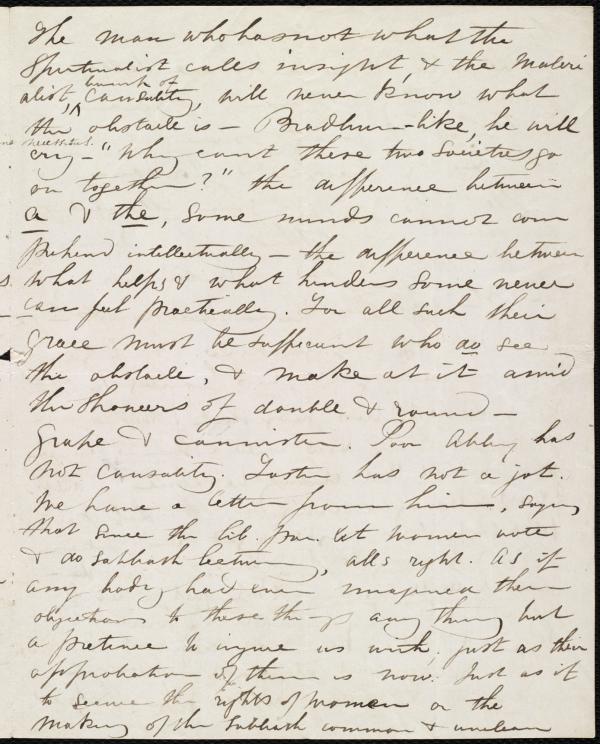 The man who has not what the
Spiritualist calls insight, & the Materi
alist, bump of Causality, will never know what
the obstacle is – Bradburn-like, he will
cry – "Why cannot these two Societies go
on together?" the difference between
a & the, some minds cannot com
prehend intellectually – the difference between
what helps & what hinders some never
can feel practically. For all such their
grace must be sufficient who do see
the obstacle, & make at it amid
the showers of double & round –
grape & cannister. Poor Abby has
not causality. Foster has not a jot.
We have a letter from him, saying
that since the lib. par. let women vote
& do Sabbath lecturing, all's right. As if
any body had ever imagined their
objections to these things any thing but
a pretence to injure us with, just as their
approbation of them is now. Just as if
to secure the rights of women or the
making of the Sabbath common & unclean